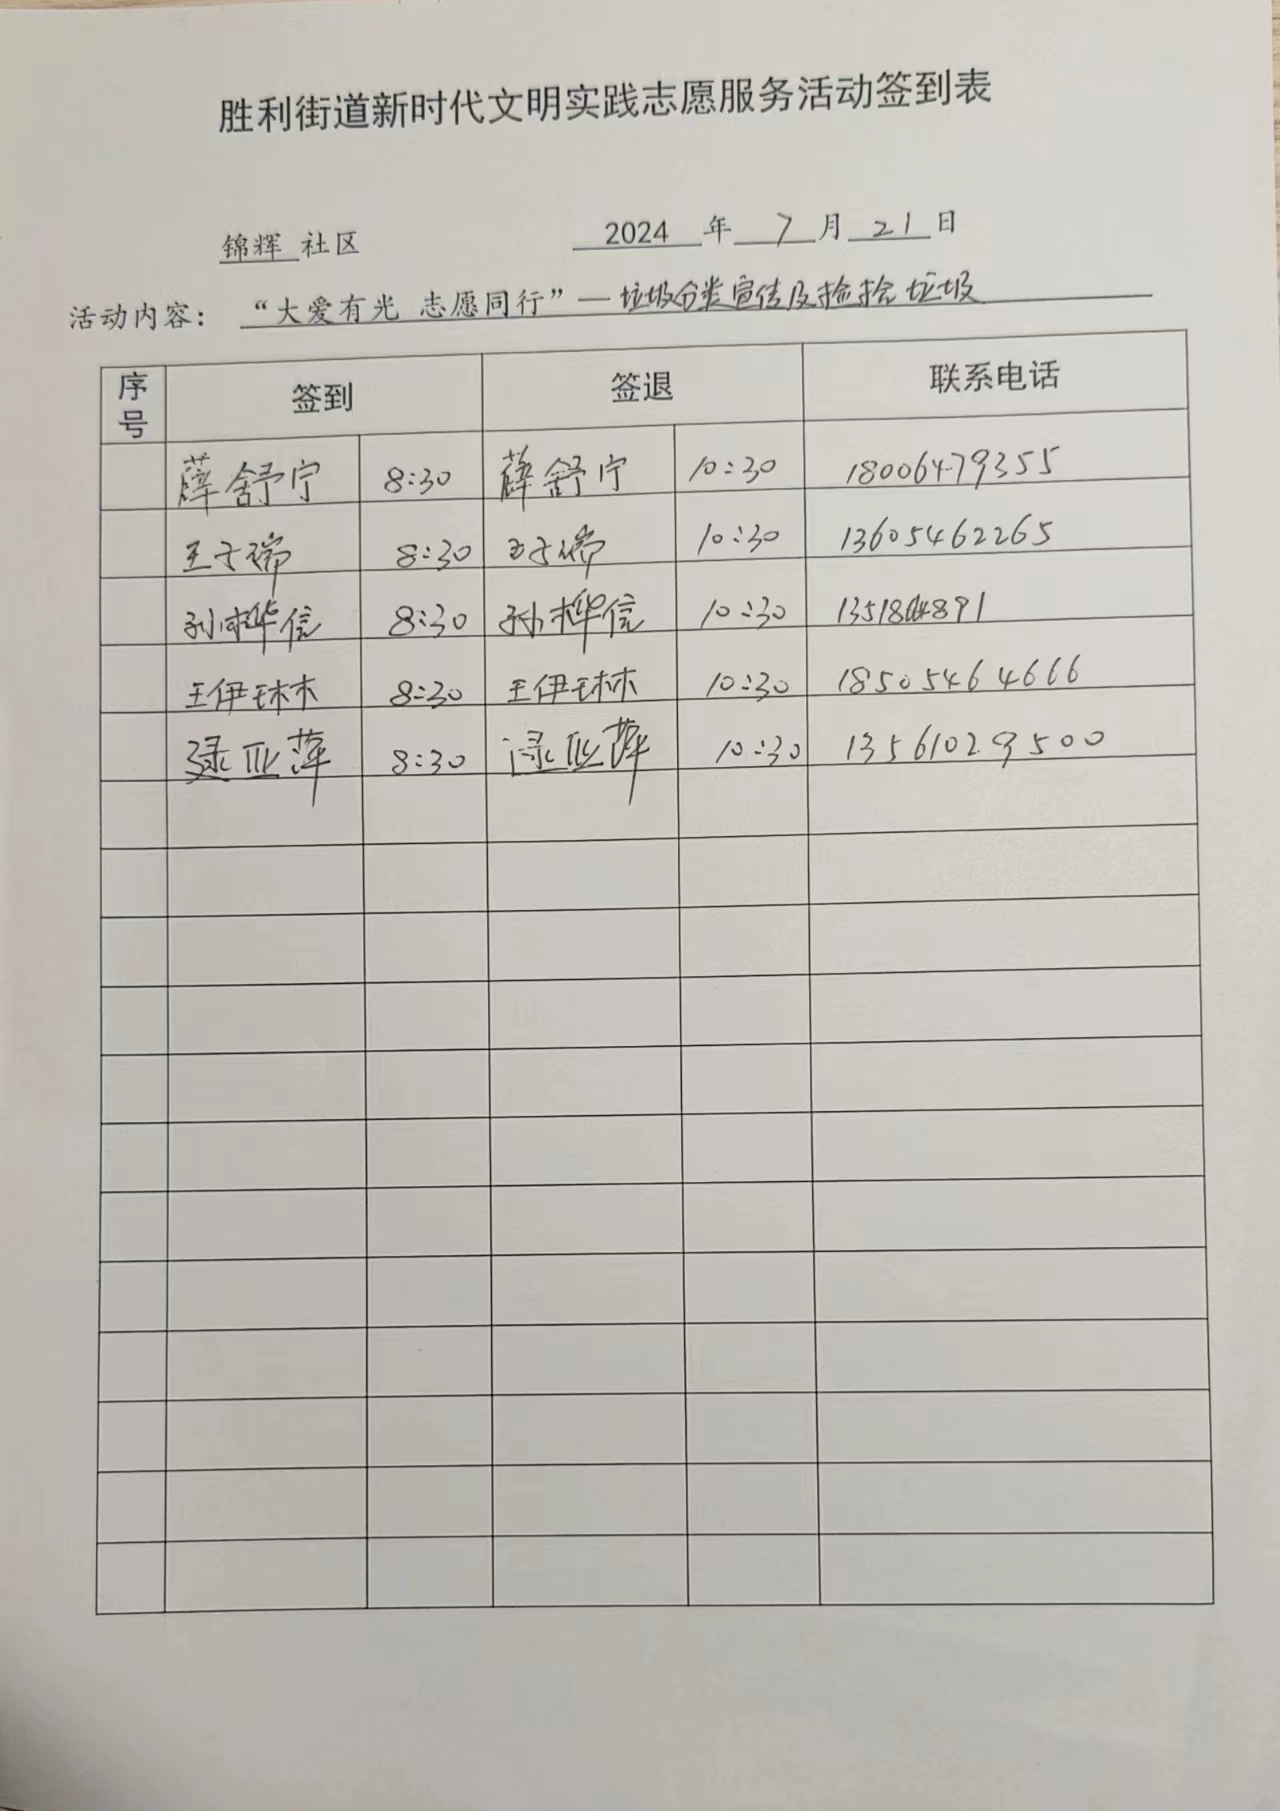 胜利街道新时代文明实践志愿服务活动签到表
锦辉 社区 2024 年 7 月 21 日
活动内容： “大爱有光 志愿同行”—垃圾分类宣传及捡拾垃圾
序号 签到 签退 联系电话
薛舒宁 8:30 薛舒宁 10:30 18006479355
王子瑞 8:30 王子瑞 10:30 13605462265
孙桦信 8:30 孙桦信 10:30
王伊琳 8:30 王伊琳 10:30 18505464666
亚萍 8:30 亚萍 10:30 13561029500